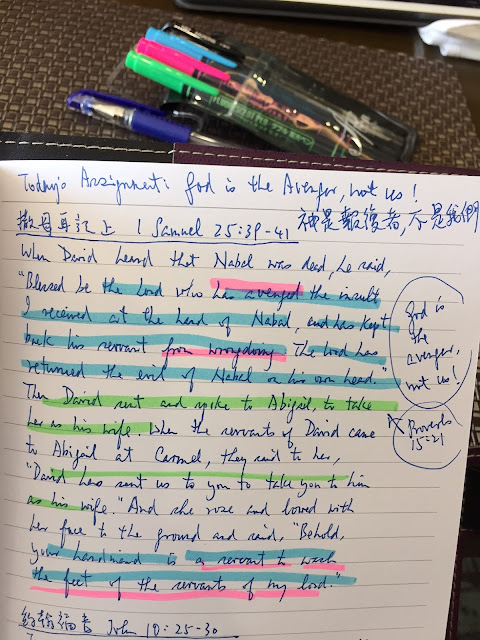 Today's Assignment: God is the Avenger, not us!
神是報復者,不是我們
撒母耳記上 1 Samuel 25:39-41
When David heard that Nabal was dead, he said,
"Blessed be the Lord who has avenged the insult
I received at the hand of Nabal, and has kept
back his servant from wrongdoing. The Lord has
returned the evil of Nabal on his own head."
Then David sent and spoke to Abigail, to take
her as his wife. When the servants of David came
to Abigail at Carmel, they said to her,
"David has sent us to you to take you to him
as his wife." And she rose and bowed with
her face to the ground and said, "Behold,
your handmaid is a servant to wash
the feet of the servants of my lord."
God is
the
avenger,
not us!
Proverbs
15:21
約翰福音 John 10:25-30